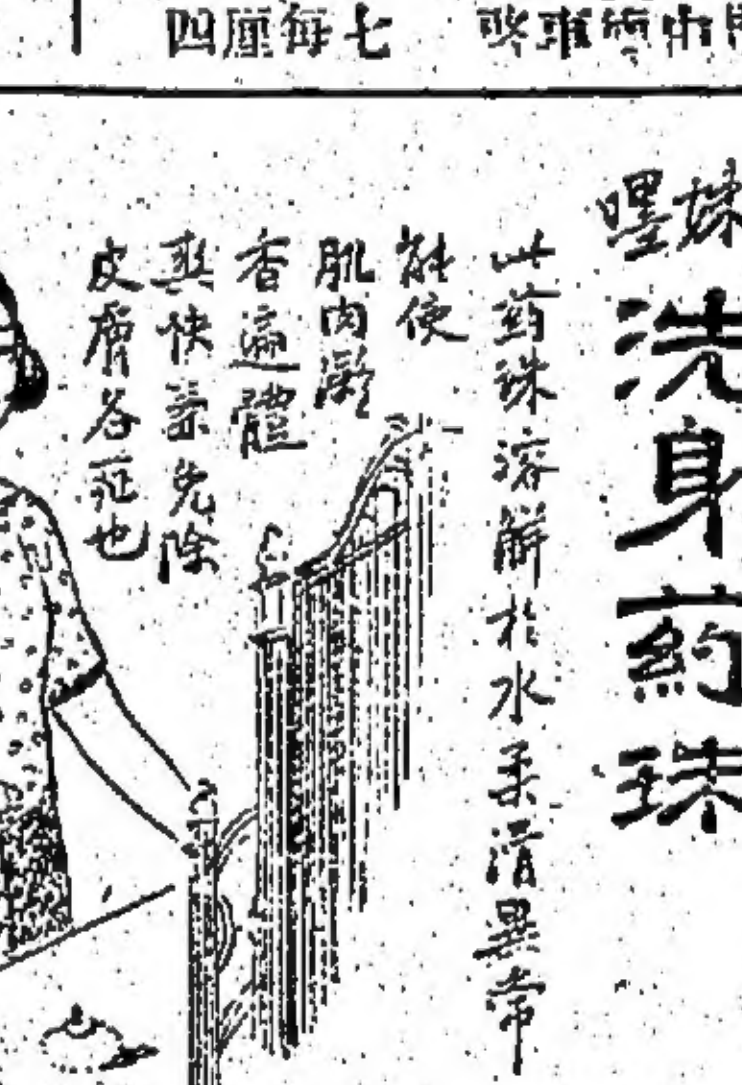 四厘每七
嚜妹
洗身葯珠
此葯珠溶解於水柔滑異常
能使
肌肉凝
香遍體
爽快兼免除
皮膚各症也